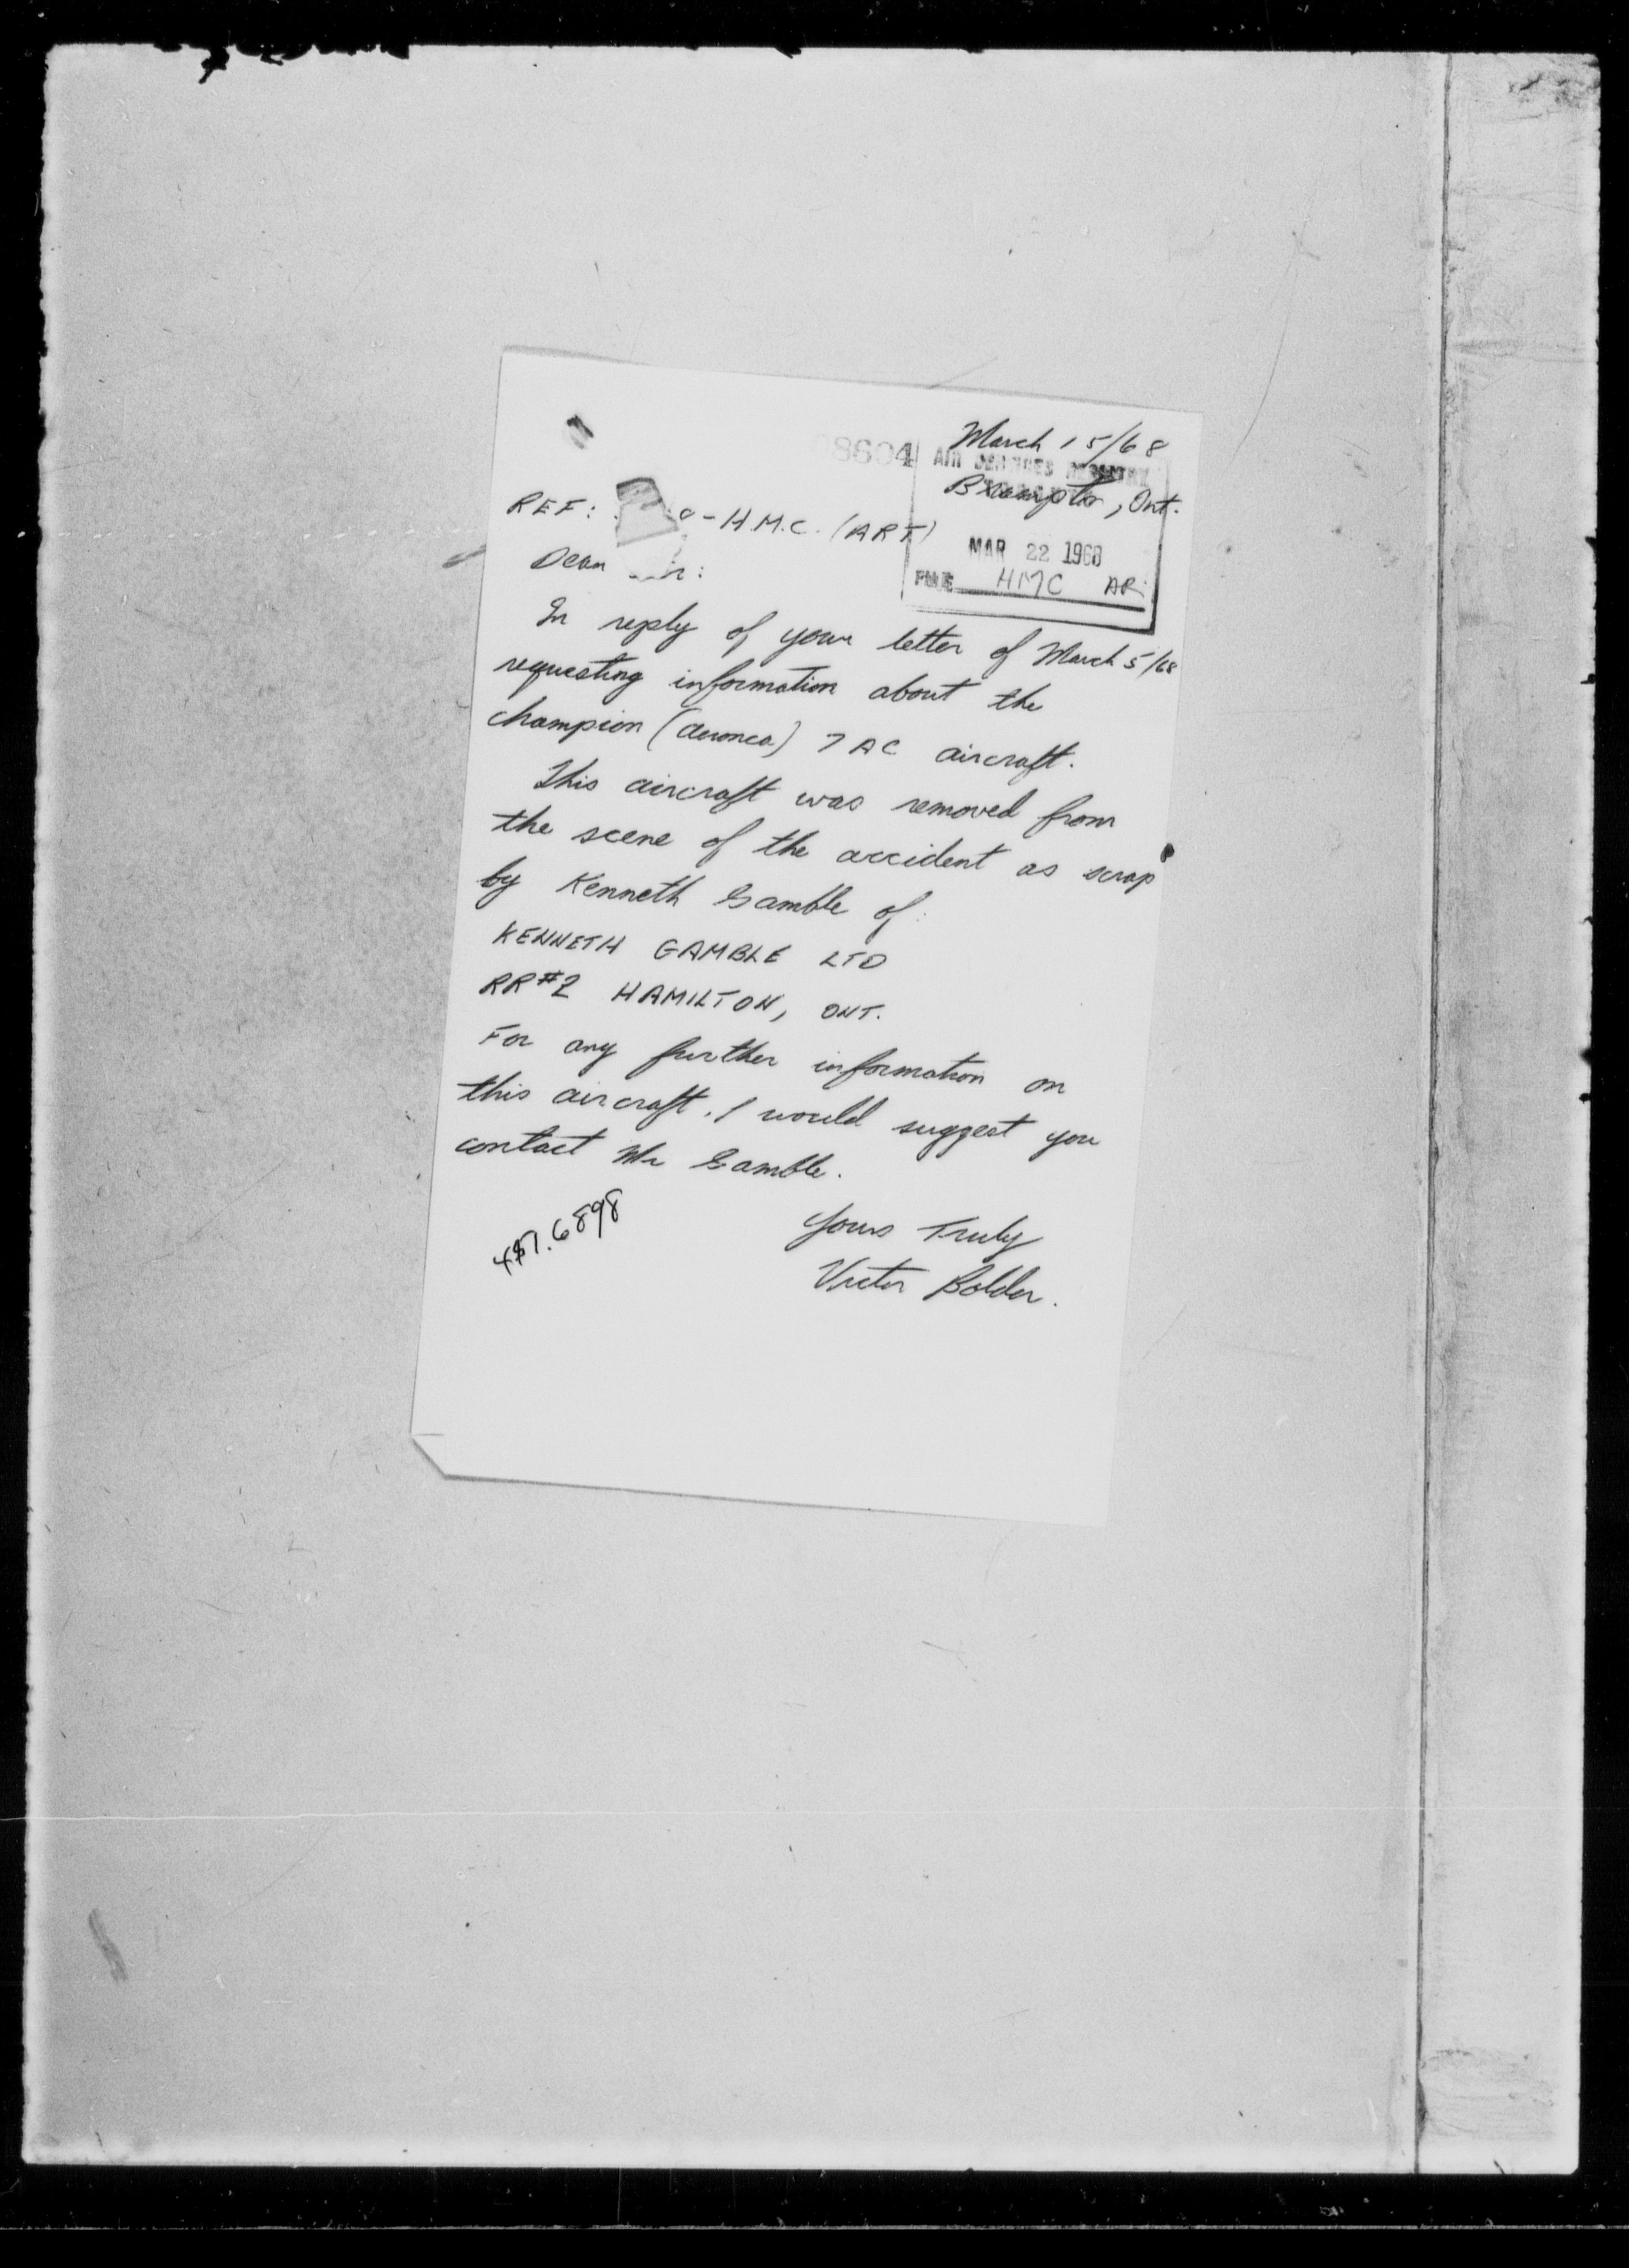 March 15/68
8604
AIR SERVICES
Brampton, Ont.
REF: -H.M.C. (ART)
MAR 22 1968
FILE HMC AR
Dear
In reply of your letter of March 5/68
requesting information about the
champion (Aeronca) 7AC aircraft.
This aircraft was removed from
the scene of the accident as scrap
by Kenneth Gamble of:
KENNETH GAMBLE LTD
RR#2 HAMILTON, ONT.
For any further information on
this aircraft, I would suggest you
contact Mr Gamble.
Yours Truly
Victor Bolder.